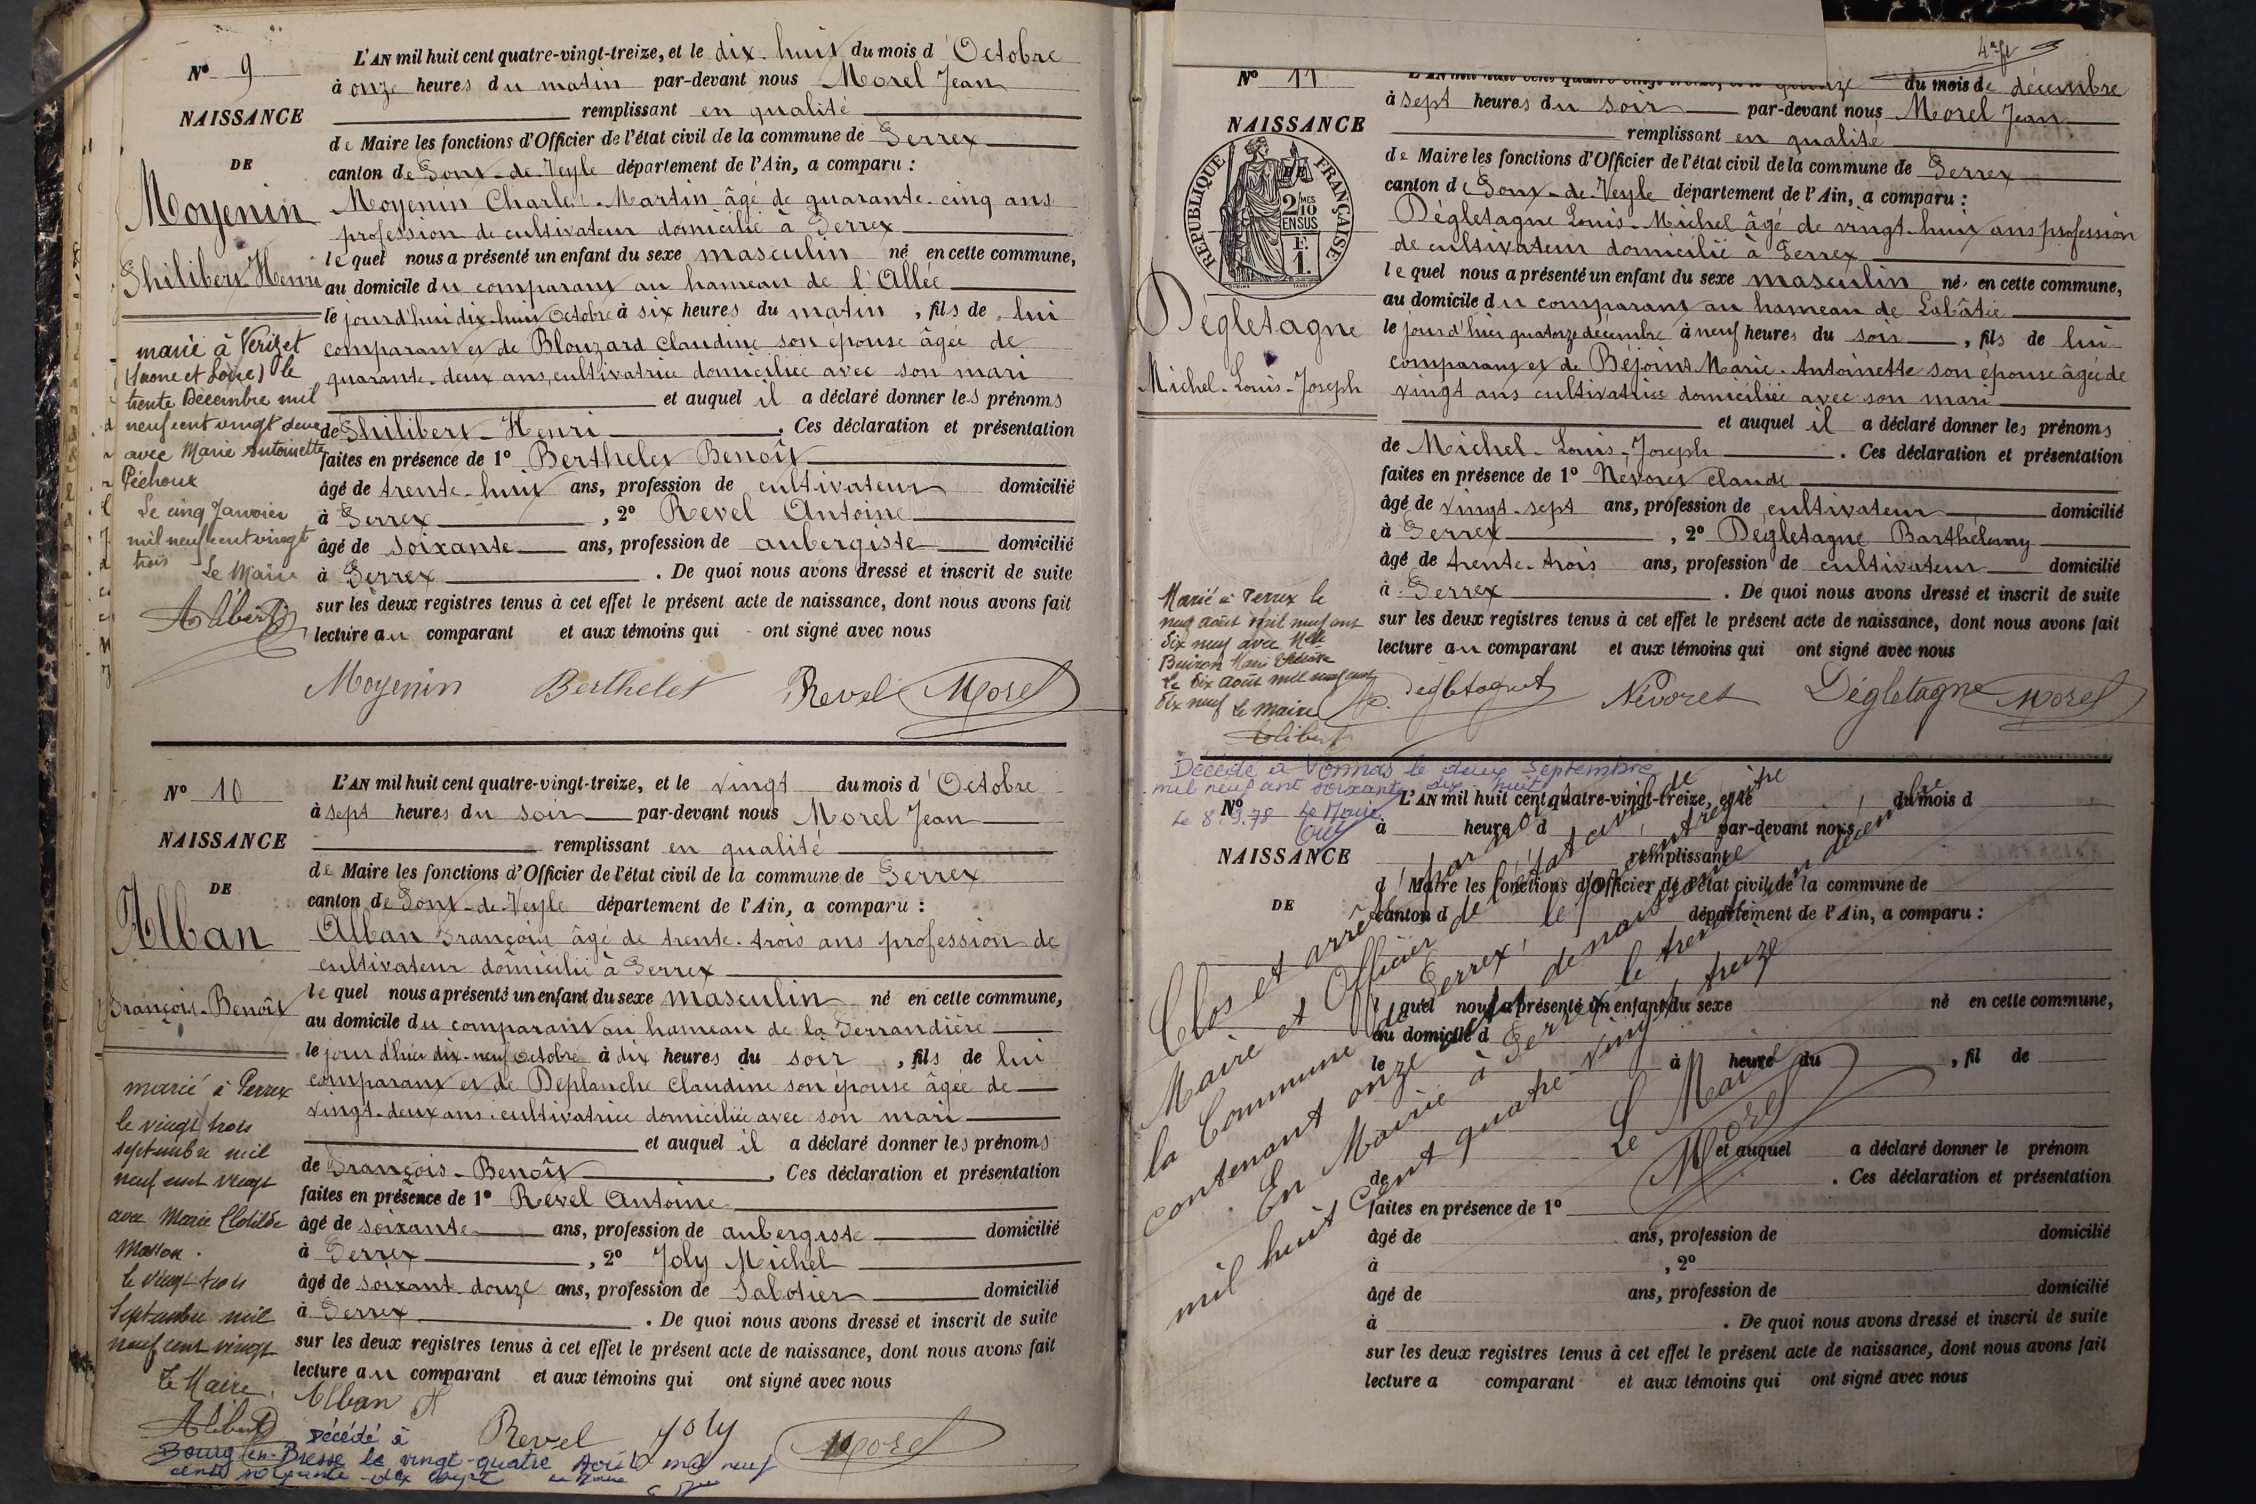 Nº 9
NAISSANCE
DE
Moyenin
Philibert Henri
marié à Verizet
(Saone et Loire) le
trente Décembre mil
neuf cent vingt deux
avec Marie Antoinette
Péchoux
Le cinq Janvier
mil neuf cent vingt
trois
Le Maire
Alibert
L'AN mil huit cent quatre-vingt-treize, et le dix-huit du mois d'Octobre
à onze heures du matin par-devant nous Morel Jean
remplissant en qualité
de Maire les fonctions d'Officier de l'état civil de la commune de Perrex
canton de Pont-de-Veyle département de l'Ain, a comparu :
Moyenin Charles-Martin âgé de quarante-cinq ans
profession de cultivateur domicilié à Perrex
lequel nous a présenté un enfant du sexe masculin né en cette commune,
au domicile du comparant au hameau de l'Allée
le jourd'hui dix-huit Octobre à six heures du matin, fils de lui
comparant et de Blouzard Claudine son épouse âgée de
quarante-deux ans, cultivatrice domiciliée avec son mari
et auquel il a déclaré donner les prénoms
de Philibert-Henri. Ces déclaration et présentation
faites en présence de 1º Berthelet Benoît
âgé de trente-huit ans, profession de cultivateur domicilié
à Perrex, 2º Revel Antoine
âgé de soixante ans, profession de aubergiste domicilié
à Perrex. De quoi nous avons dressé et inscrit de suite
sur les deux registres tenus à cet effet le présent acte de naissance, dont nous avons fait
lecture au comparant et aux témoins qui ont signé avec nous
Moyenin Berthelet Revel Morel
Nº 10
NAISSANCE
DE
Alban
François-Benoît
marié à Perrex
le vingt trois
septembre mil
neuf cent vingt
avec Marie Clotilde
Masson.
Le vingt trois
Septembre mil
neuf cent vingt
Le Maire,
Alibert
L'AN mil huit cent quatre-vingt-treize, et le vingt du mois d'Octobre
à sept heures du soir par-devant nous Morel Jean
remplissant en qualité
de Maire les fonctions d'Officier de l'état civil de la commune de Perrex
canton de Pont-de-Veyle département de l'Ain, a comparu :
Alban François âgé de trente-trois ans profession de
cultivateur domicilié à Perrex
lequel nous a présenté un enfant du sexe masculin né en cette commune,
au domicile du comparant au hameau de la Ferrandière
le jour d'hier dix-neuf Octobre à dix heures du soir, fils de lui
comparant et de Deplanche Claudine son épouse âgée de
vingt-deux ans, cultivatrice domiciliée avec son mari
et auquel il a déclaré donner les prénoms
de François-Benoît. Ces déclaration et présentation
faites en présence de 1º Revel Antoine
âgé de soixante ans, profession de aubergiste domicilié
à Perrex, 2º Joly Michel
âgé de soixant douze ans, profession de Sabotier domicilié
à Perrex. De quoi nous avons dressé et inscrit de suite
sur les deux registres tenus à cet effet le présent acte de naissance, dont nous avons fait
lecture au comparant et aux témoins qui ont signé avec nous
Alban Revel Joly Morel
Décédé à
Bourg-en-Bresse le vingt-quatre Août mil neuf
cent soixante-dix sept Le Maire
4e ft
Nº 11
NAISSANCE
RÉPUBLIQUE FRANÇAISE
2/10MES
EN SUS
1F.
Dégletagne
Michel-Louis-Joseph
Marié à Perrex le
neuf août mil neuf cent
dix neuf avec Melle
Buiron Marie
Le dix août mil neuf cent
dix neuf Le Maire
Alibert
L'AN mil huit cent quatre-vingt-treize, et le quinze du mois de décembre
à sept heures du soir par-devant nous Morel Jean
remplissant en qualité
de Maire les fonctions d'Officier de l'état civil de la commune de Perrex
canton de Pont-de-Veyle département de l'Ain, a comparu :
Dégletagne Louis-Michel âgé de vingt-huit ans profession
de cultivateur domicilié à Perrex
lequel nous a présenté un enfant du sexe masculin né en cette commune,
au domicile du comparant au hameau de Labâtie
le jour d'hier quatorze décembre à neuf heures du soir, fils de lui
comparant et de Béjoint Marie-Antoinette son épouse âgée de
vingt ans cultivatrice domiciliée avec son mari
et auquel il a déclaré donner les prénoms
de Michel-Louis-Joseph. Ces déclaration et présentation
faites en présence de 1º Névoret Claude
âgé de vingt-sept ans, profession de cultivateur domicilié
à Perrex, 2º Dégletagne Barthélemy
âgé de trente-trois ans, profession de cultivateur domicilié
à Perrex. De quoi nous avons dressé et inscrit de suite
sur les deux registres tenus à cet effet le présent acte de naissance, dont nous avons fait
lecture au comparant et aux témoins qui ont signé avec nous
Degletagne Névoret Dégletagne Morel
Décédé à Vonnas le deux Septembre
mil neuf cent soixante dix huit
Le 8.9.78 Le Maire
Nº
NAISSANCE
DE
L'AN mil huit cent quatre-vingt-treize, et le du mois d
à heure d par-devant nous
remplissant
d Maire les fonctions d'Officier de l'état civil de la commune de
canton d département de l'Ain, a comparu :
quel nous a présenté un enfant du sexe né en cette commune,
au domicile d
le à heure du , fil de
et auquel a déclaré donner le prénom
de . Ces déclaration et présentation
faites en présence de 1º
âgé de ans, profession de domicilié
à , 2º
âgé de ans, profession de domicilié
à . De quoi nous avons dressé et inscrit de suite
sur les deux registres tenus à cet effet le présent acte de naissance, dont nous avons fait
lecture a comparant et aux témoins qui ont signé avec nous
Clos et arrêté par nous
Maire et Officier de l'état civil de
la Commune de Perrex, le présent registre
contenant onze actes de naissance
En Mairie à Perrex le trente un décembre
mil huit cent quatre-vingt treize
Le Maire
Morel